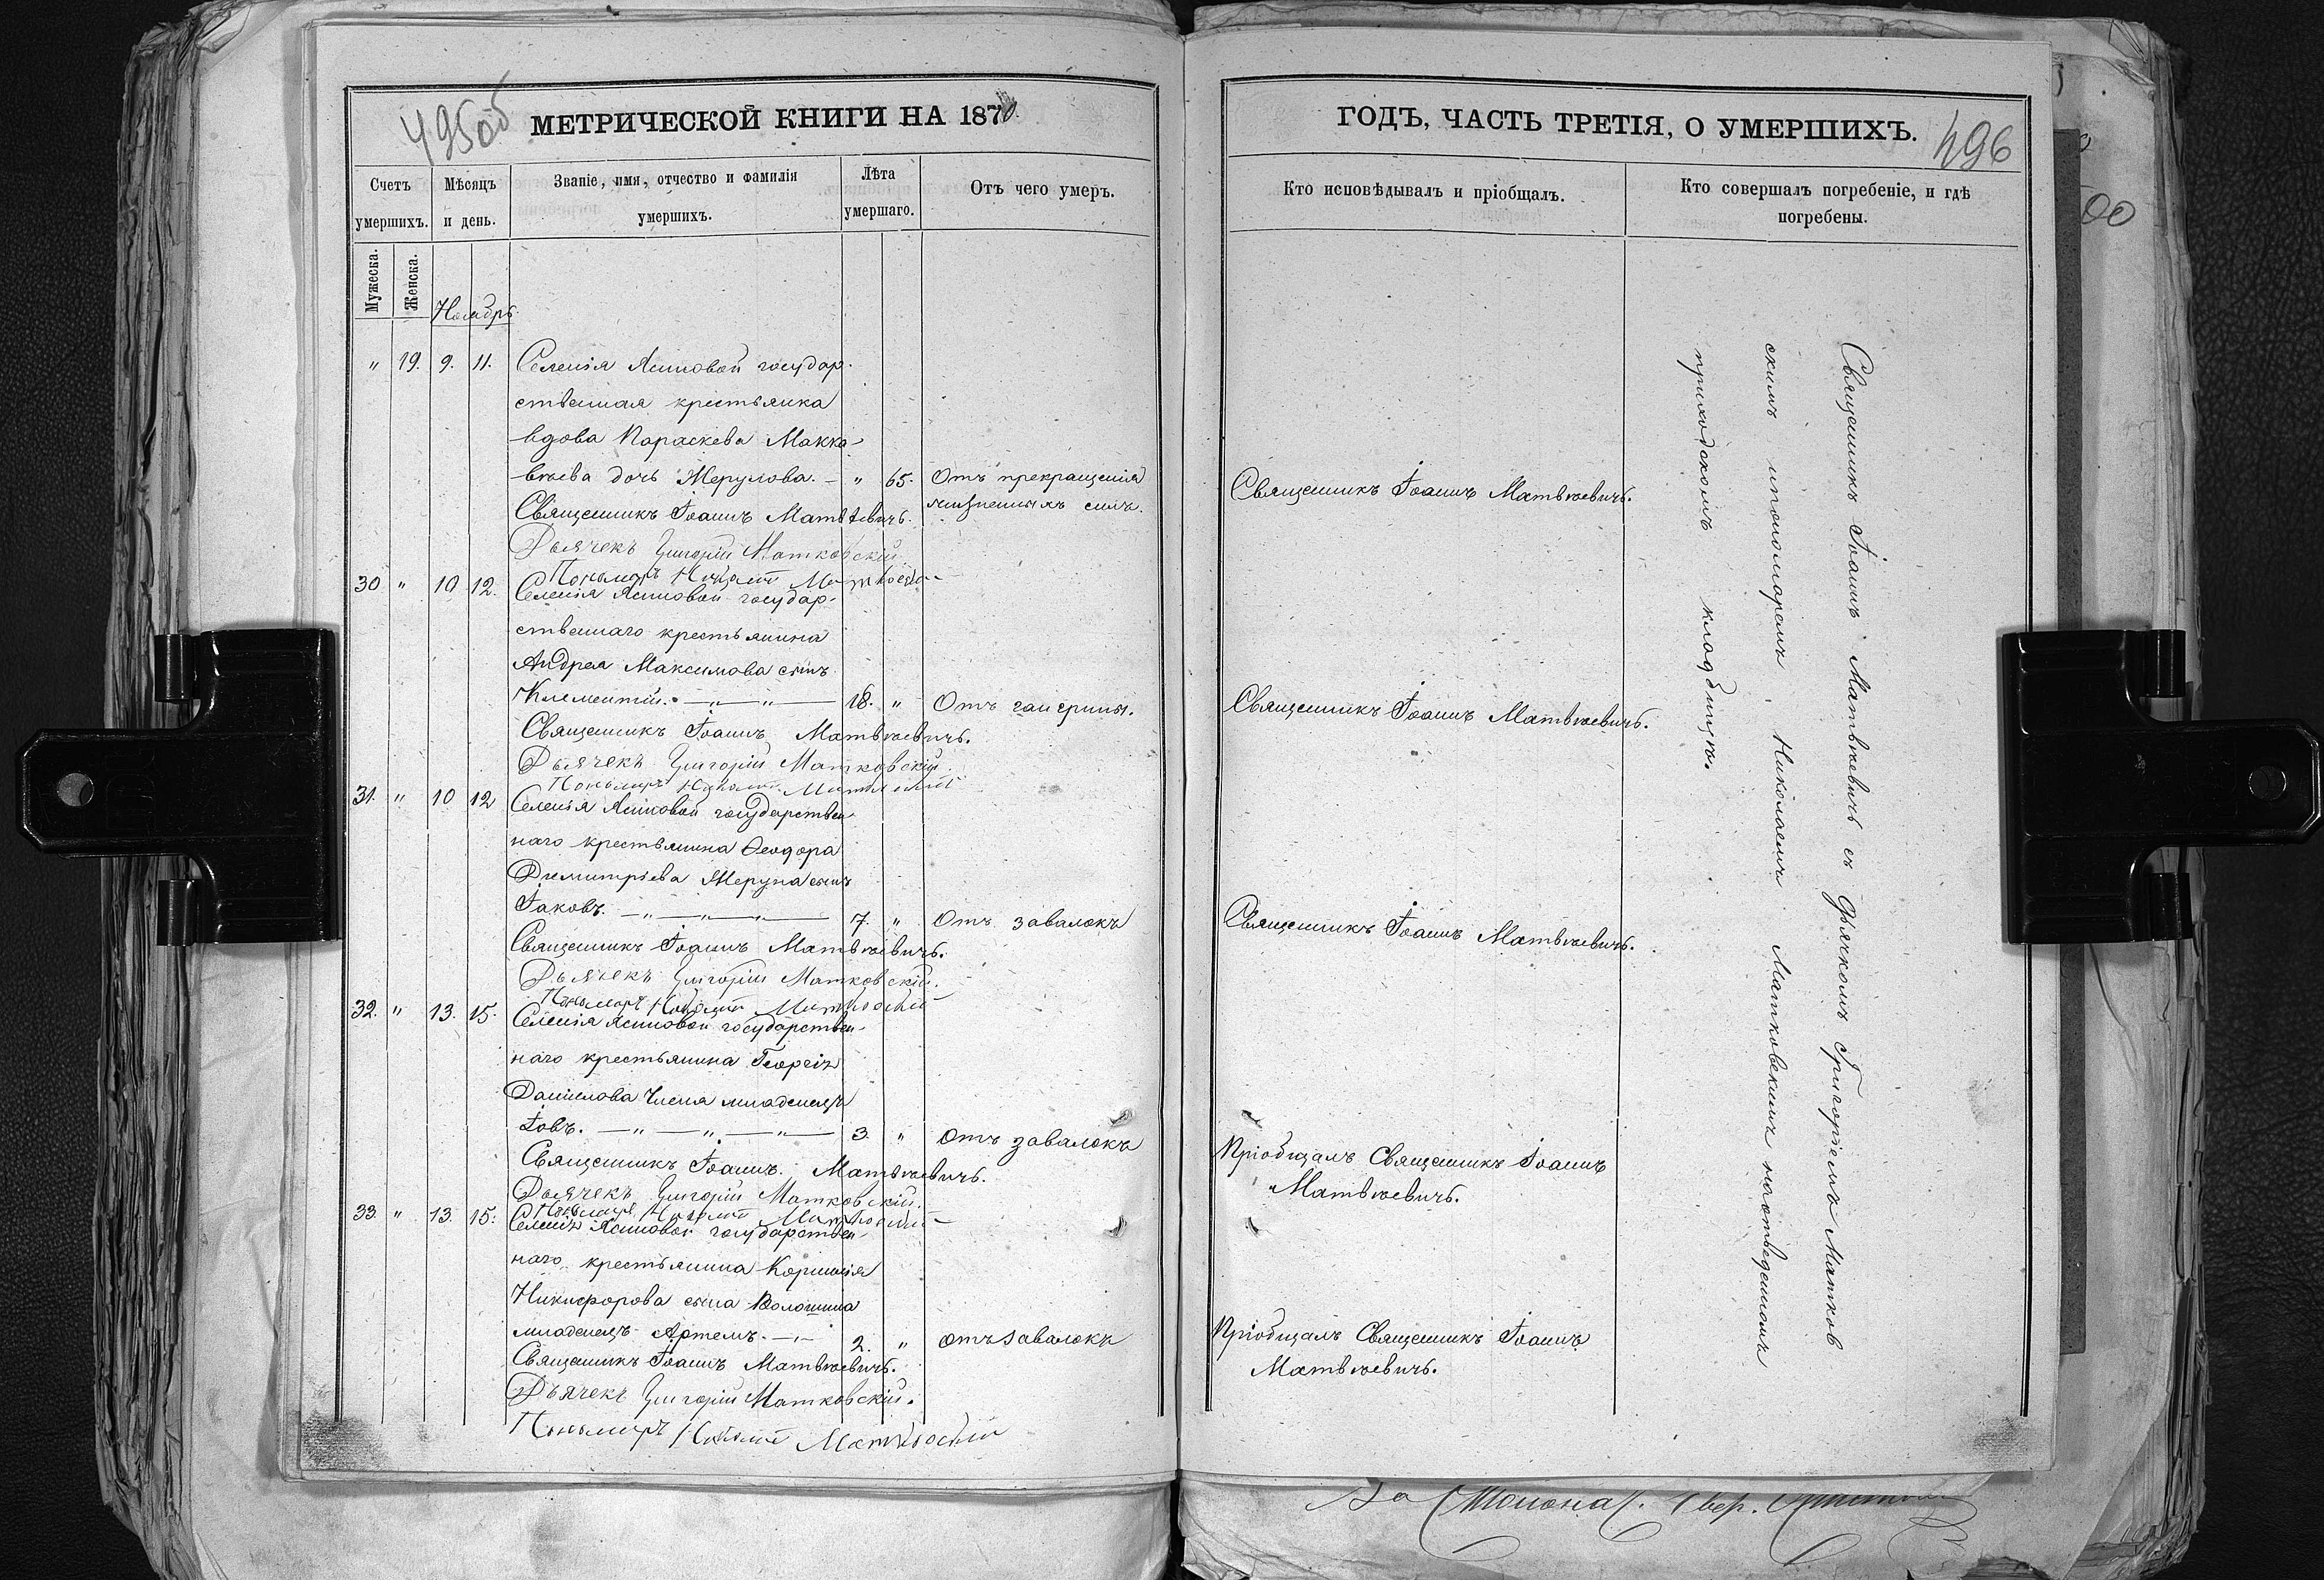 495об
МЕТРИЧЕСКОЙ КНИГИ НА 1870
Счетъ умершихъ.
Мѣсяцъ и день.
Званіе, имя, отчество и фамилія умершихъ.
Лѣта умершаго.
Отъ чего умеръ.
Мужеска.
Женска.
Ноябрь
" 19. 9. 11. Селенія Ясиповой государ-
ственная крестьянка
вдова Параскева Макка-
вѣева дочь Мерулова. — " 65. Отъ прекращенія
жизненныхъ силъ.
Священникъ Іоаннъ Матвѣевичъ.
Дьячекъ Григорій Матковскій
Пономарь Николай Матковскій
30 " 10 12. Селенія Ясиповой государ-
ственнаго крестьянина
Андрея Максимова сынъ
Климентій. — " — " — 18. " Отъ гангрины.
Священникъ Іоаннъ Матвѣевичъ.
Дьячекъ Григорій Матковскій.
Пономарь Николай Матковскій
31. " 10 12 Селенія Ясиповой государствен-
наго крестьянина Ѳеодора
Димитріева Меруна сынъ
Іаковъ. — " — " — " — 7. " Отъ завалокъ
Священникъ Іоаннъ Матвѣевичъ.
Дьячекъ Григорій Матковскій.
Пономарь Николай Матковскій
32. " 13. 15. Селенія Ясиповой государствен-
наго крестьянина Георгія
Данилова младенецъ
Іовъ. — " — " — " — 3. " Отъ завалокъ
Священникъ Іоаннъ Матвѣевичъ.
Дьячекъ Григорій Матковскій.
Пономарь Николай Матковскій
33. " 13. 15. Селенія Ясиповой государствен-
наго крестьянина Корнилія
Никифорова сына Волошина
младенецъ Артемъ. — " — 2. " отъ завалокъ
Священникъ Іоаннъ Матвѣевичъ.
Дьячекъ Григорій Матковскій.
Пономарь Николай Матковскій
ГОДЪ, ЧАСТЬ ТРЕТІЯ, О УМЕРШИХЪ.
496
Кто исповѣдывалъ и пріобщалъ.
Кто совершалъ погребеніе, и гдѣ
погребены.
Священникъ Іоаннъ Матвѣевичъ.
Священникъ Іоаннъ Матвѣевичъ.
Священникъ Іоаннъ Матвѣевичъ.
Пріобщалъ Священникъ Іоаннъ
Матвѣевичъ.
Пріобщалъ Священникъ Іоаннъ
Матвѣевичъ.
Священникъ Іоаннъ Матвѣевичъ съ дьячкомъ Григоріемъ Матков
скимъ и пономаремъ Николаемъ Матковскимъ на отведенномъ
приходскомъ кладбищѣ.
00